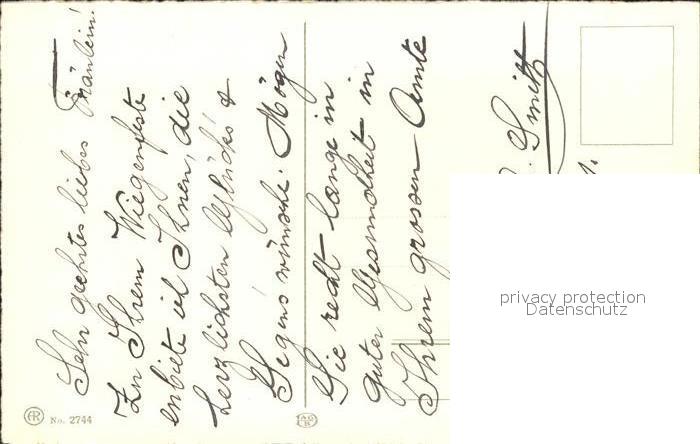 Sehr geehrtes liebes Fräulein!
Zu Ihrem Wiegenfeste
enbiete ich Ihnen, die
herzlichsten Glückes &
Segenswünsche. Mögen
Sie recht lange in
guter Gesundheit in
Ihrem grossen Amte
Smitt
privacy protection
Datenschutz
AR
No. 2744